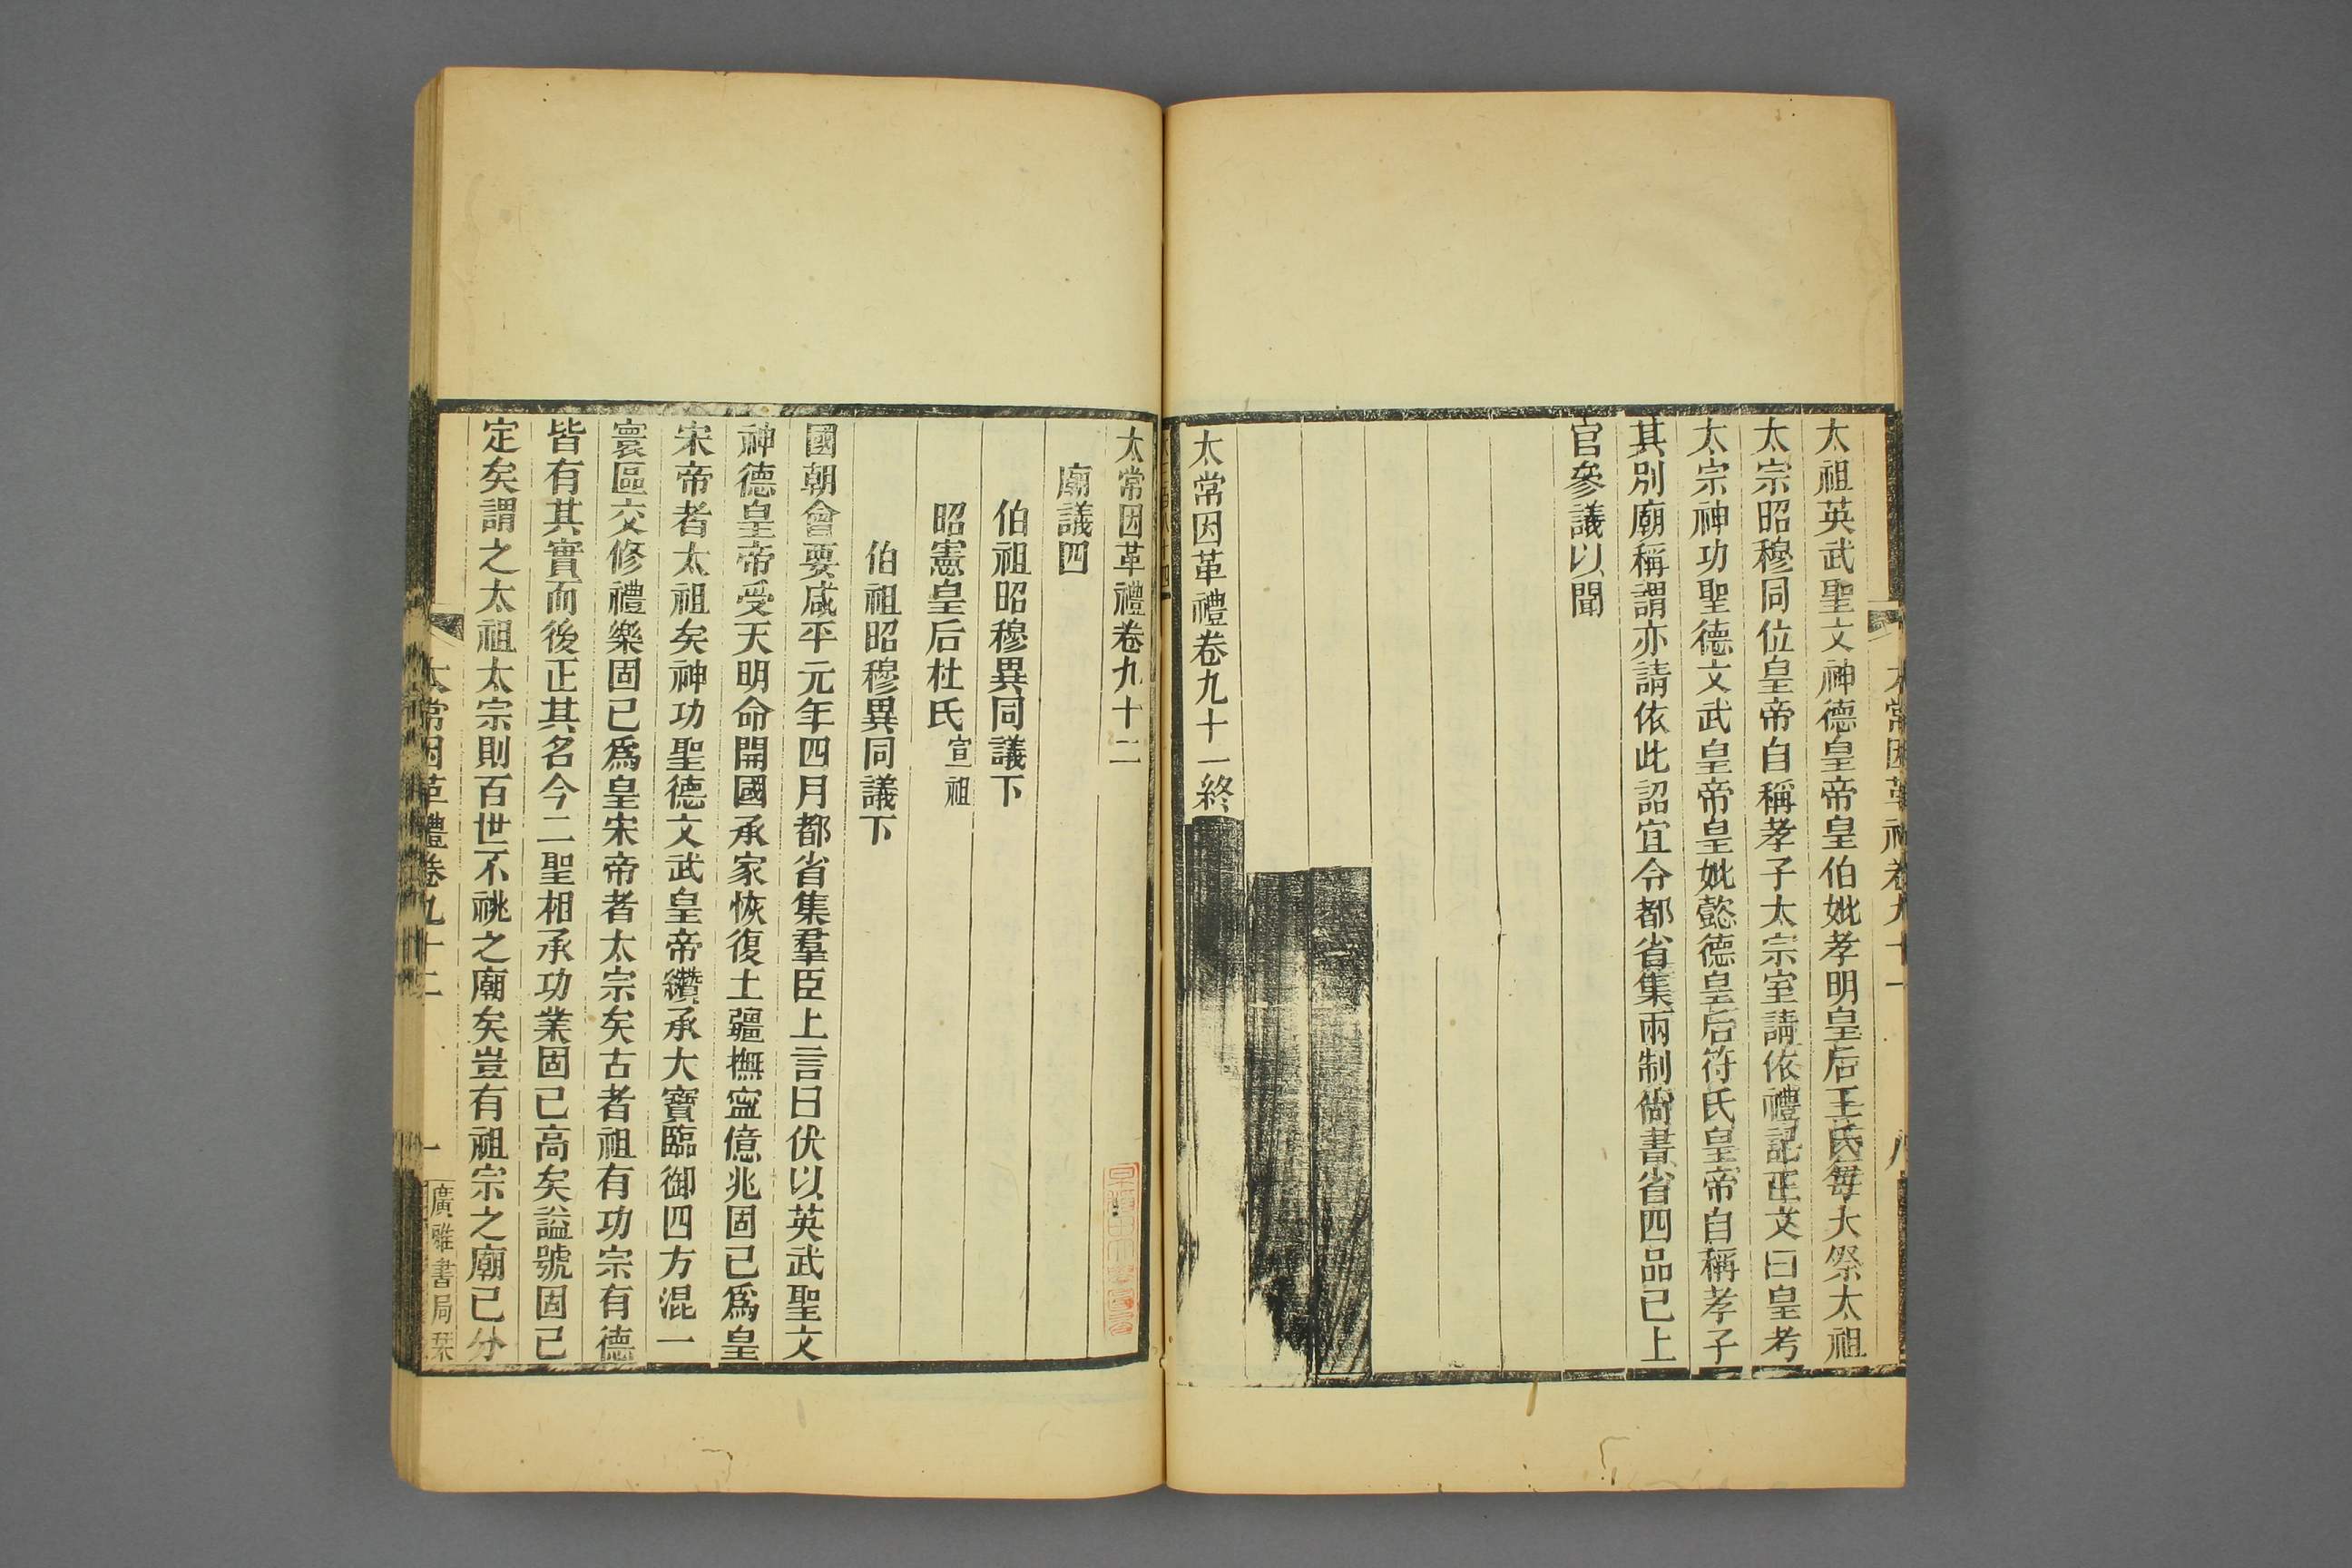 太祖英武聖文神德皇帝皇伯妣孝明皇后王氏每大祭太祖
太宗昭穆同位皇帝自稱孝子太宗室請依禮記正文曰皇考
太宗神功聖德文武皇帝皇妣懿德皇后符氏皇帝自稱孝子
其別廟稱謂亦請依此詔宜令都省集兩制尚書省四品已上
官參議以聞
太常因革禮卷九十一終
太常因革禮卷九十二
廟議四
伯祖昭穆異同議下
昭憲皇后杜氏宣祖
伯祖昭穆異同議下
國朝會要咸平元年四月都省集羣臣上言曰伏以英武聖文
神德皇帝受天明命開國承家恢復土疆撫寍億兆固已爲皇
宋帝者太祖矣神功聖德文武皇帝纘承大寶臨御四方混一
寰區交修禮樂固已爲皇宋帝者太宗矣古者祖有功宗有德
皆有其實而後正其名今二聖相承功業固已高矣謚號固已
定矣謂之太祖太宗則百世不祧之廟矣豈有祖宗之廟已分
太常因革禮卷九十二
一
廣雅書局栞